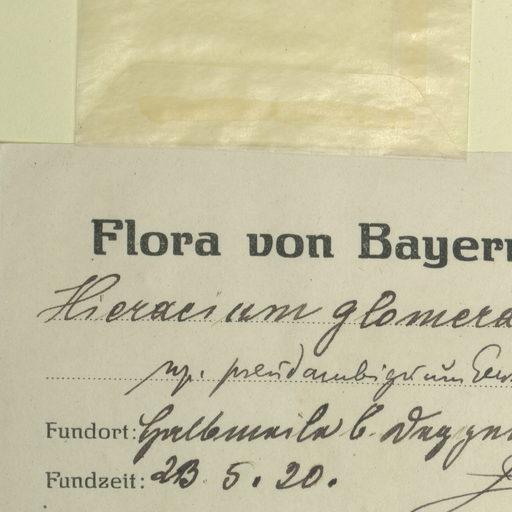 Flora von Bayern
Hieracium glomera
ssp. pseudambiguum
Fundort: Halbmeile b. Deggen
Fundzeit: 23 5. 20.